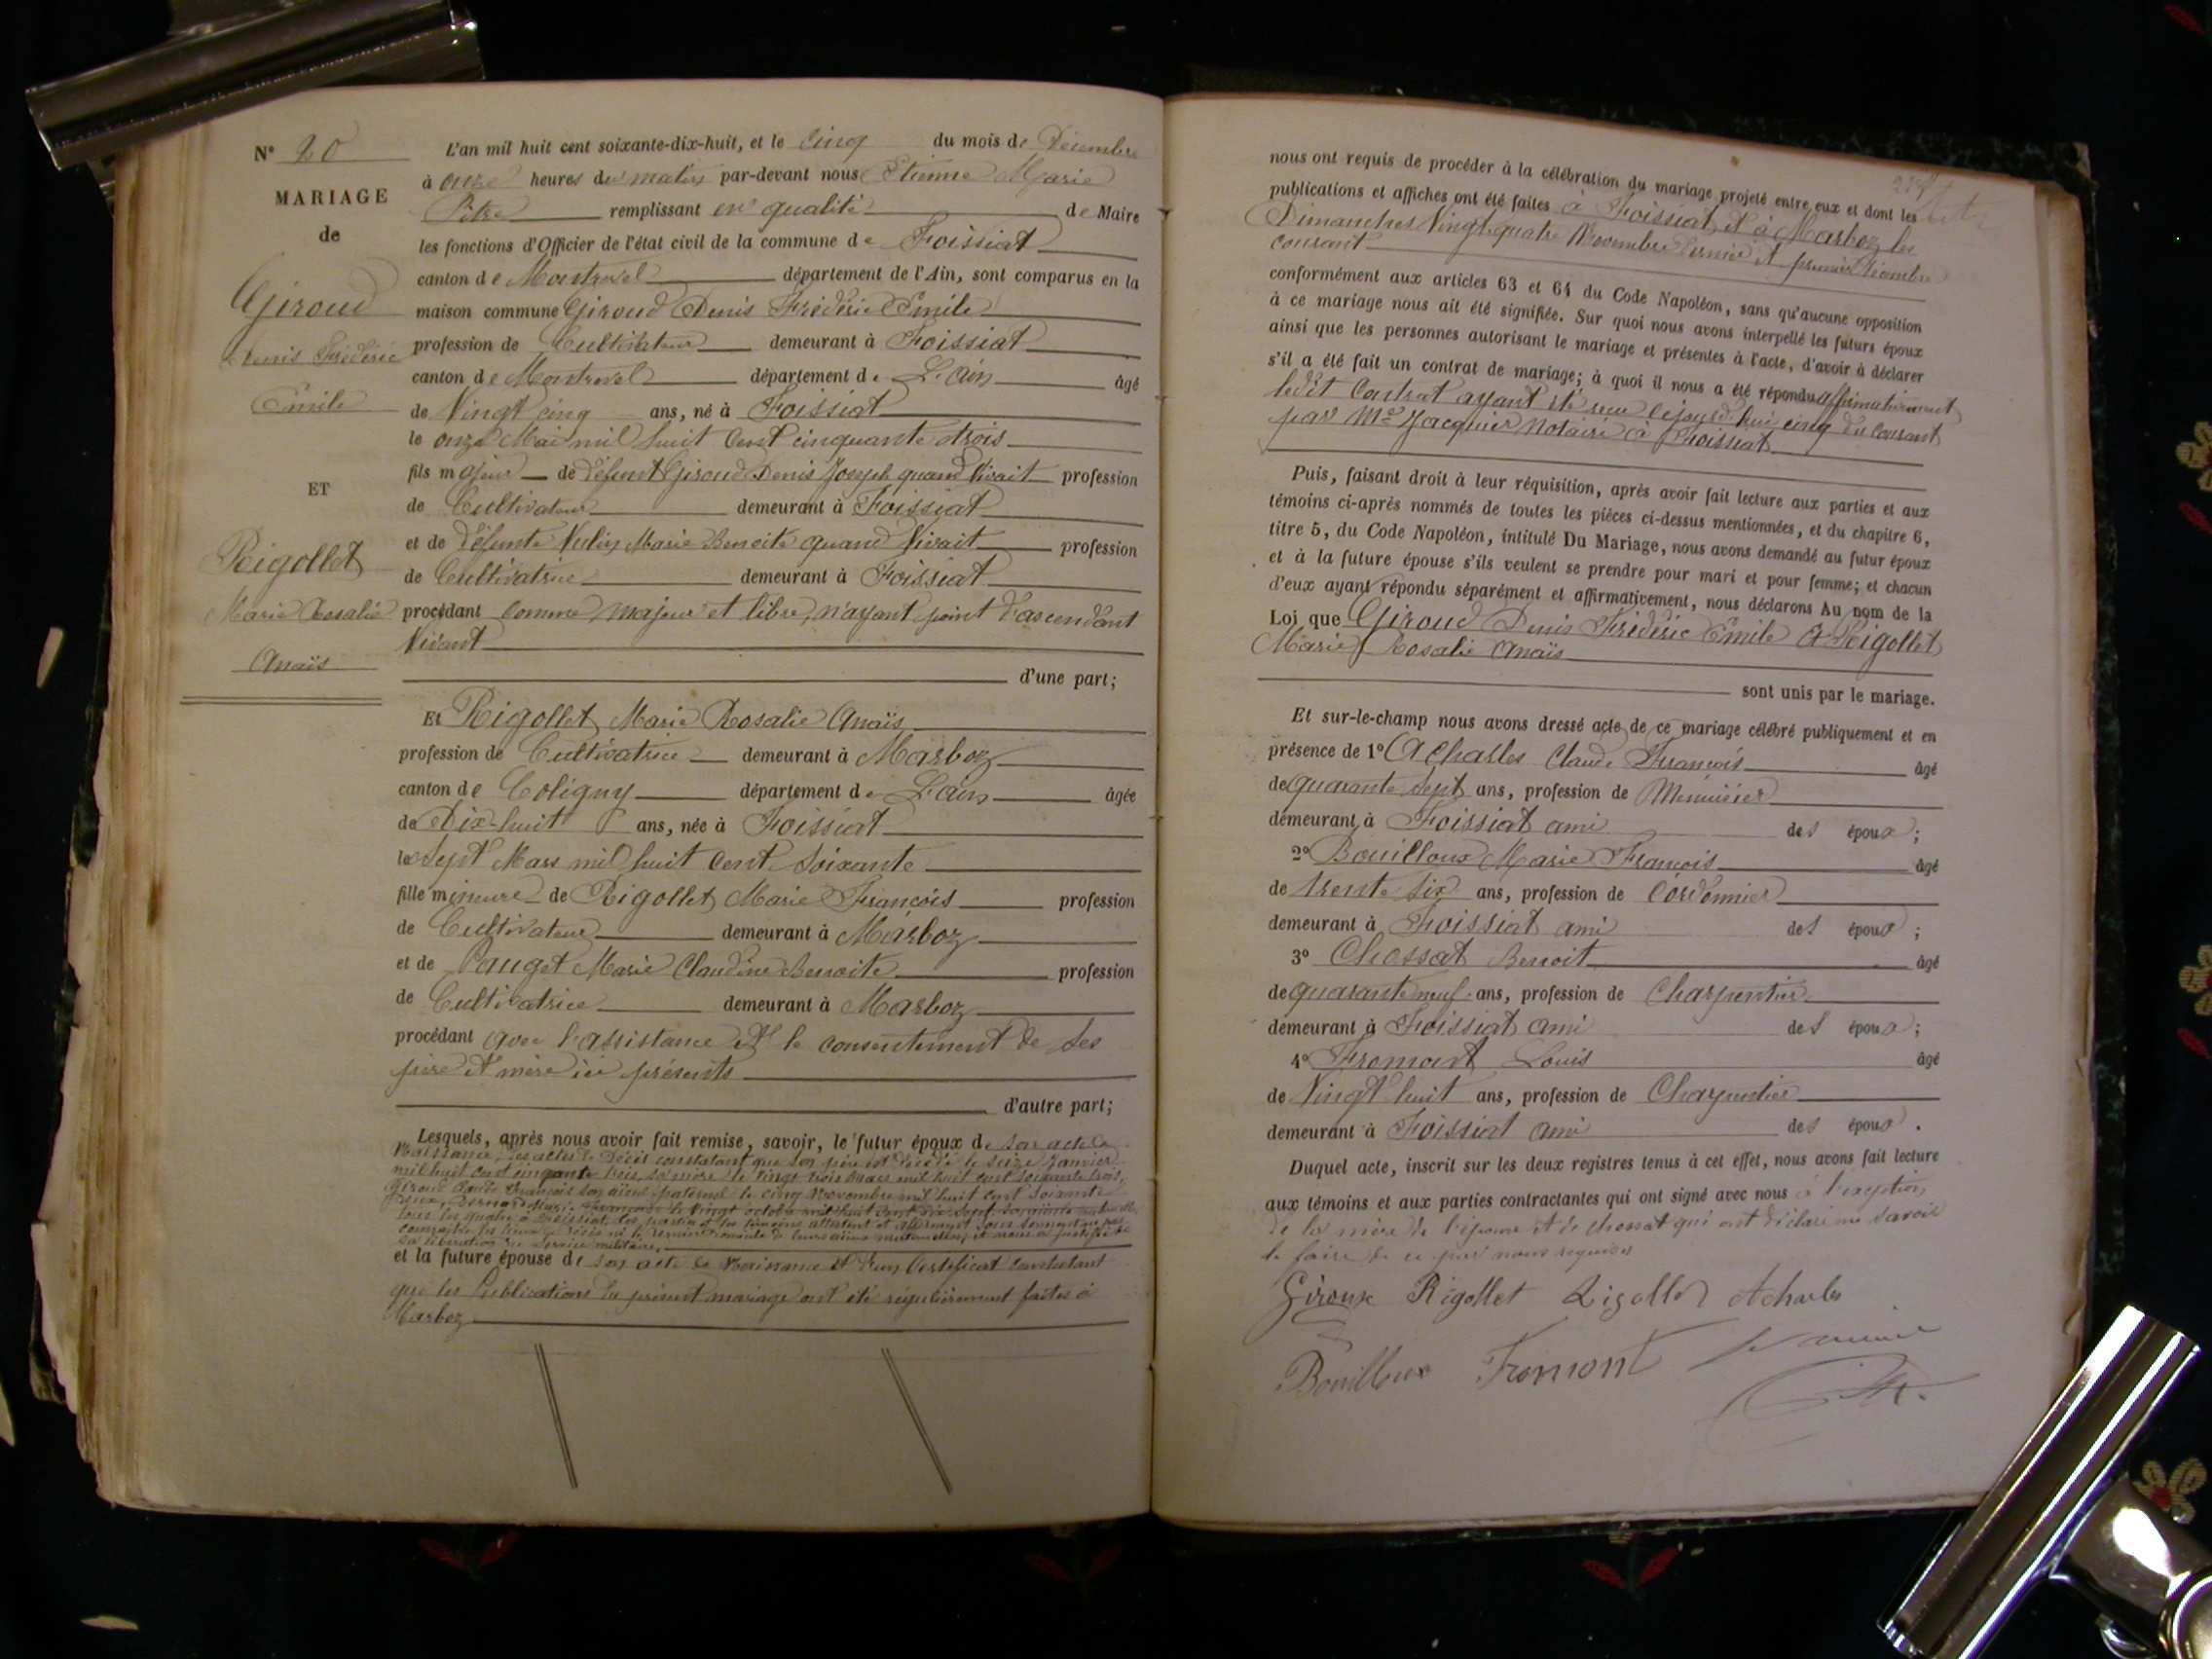 N° 20
MARIAGE
de
Giroud
Denis Frédéric
Emile
ET
Rigollet
Marie Rosalie
Anaïs
L'an mil huit cent soixante-dix-huit, et le cinq du mois de Décembre
à onze heures du matin par-devant nous Etienne Marie
Pitre remplissant en qualité de Maire
les fonctions d'Officier de l'état civil de la commune de Foissiat
canton de Montrevel département de l'Ain, sont comparus en la
maison commune Giroud Denis Frédéric Emile
profession de Cultivateur demeurant à Foissiat
canton de Montrevel département de L'ain âgé
de Vingt cinq ans, né à Foissiat
le onze Mai mil huit cent cinquante trois
fils majeur de défunt Giroud Denis Joseph quand Vivait profession
de Cultivateur demeurant à Foissiat
et de défunte Marie Benoite quand Vivait profession
de Cultivatrice demeurant à Foissiat
procédant comme majeur et libre, n'ayant point d'ascendant
Vivant
d'une part;
Et Rigollet Marie Rosalie Anaïs
profession de Cultivatrice demeurant à Marboz
canton de Coligny département de L'ain âgée
de Dix-huit ans, née à Foissiat
le sept Mars mil huit cent soixante
fille mineure de Rigollet Marie François profession
de Cultivateur demeurant à Marboz
et de Pauget Marie Claudine Benoite profession
de Cultivatrice demeurant à Marboz
procédant avec l'assistance et le consentement de ses
père et mère ici présents
d'autre part;
Lesquels, après nous avoir fait remise, savoir, le futur époux de son acte de
Naissance, des actes de Décès constatant que son père est décédé le seize Janvier
mil huit cent cinquante trois, sa mère le vingt trois mars mil huit cent soixante trois,
Giroud Claude François son aïeul paternel le cinq Novembre mil huit cent soixante
sa libération du service militaire,
et la future épouse de son acte de Naissance et d'un Certificat constatant
que les Publications du présent mariage ont été régulièrement faites à
Marboz
nous ont requis de procéder à la célébration du mariage projeté entre eux et dont les
publications et affiches ont été faites à Foissiat et à Marboz les
Dimanches Vingt quatre Novembre dernier et premier Décembre
courant
conformément aux articles 63 et 64 du Code Napoléon, sans qu'aucune opposition
à ce mariage nous ait été signifiée. Sur quoi nous avons interpellé les futurs époux
ainsi que les personnes autorisant le mariage et présentes à l'acte, d'avoir à déclarer
s'il a été fait un contrat de mariage; à quoi il nous a été répondu affirmativement
ledit Contrat ayant été reçu cejourd'hui cinq du courant
par Me Jacquier Notaire à Foissiat
Puis, faisant droit à leur réquisition, après avoir fait lecture aux parties et aux
témoins ci-après nommés de toutes les pièces ci-dessus mentionnées, et du chapitre 6,
titre 5, du Code Napoléon, intitulé Du Mariage, nous avons demandé au futur époux
et à la future épouse s'ils veulent se prendre pour mari et pour femme; et chacun
d'eux ayant répondu séparément et affirmativement, nous déclarons Au nom de la
Loi que Giroud Denis Frédéric Emile et Rigollet
Marie Rosalie Anaïs
sont unis par le mariage.
Et sur-le-champ nous avons dressé acte de ce mariage célébré publiquement et en
présence de 1° Acharles Claude François âgé
de quarante sept ans, profession de Menuisier
demeurant à Foissiat ami des époux;
2° Bouilloux Marie François âgé
de trente six ans, profession de Cordonnier
demeurant à Foissiat ami des époux;
3° Chossat Benoit âgé
de quarante neuf ans, profession de Charpentier
demeurant à Foissiat ami des époux;
4° Fromont Louis âgé
de Vingt huit ans, profession de Charpentier
demeurant à Foissiat ami des époux.
Duquel acte, inscrit sur les deux registres tenus à cet effet, nous avons fait lecture
aux témoins et aux parties contractantes qui ont signé avec nous à l'exception
de la mère de l'épouse et de chossat qui ont déclaré ne savoir
le faire de ce par nous requis
Giroux Rigollet Rigollet Acharles
Bouilloux Fromont